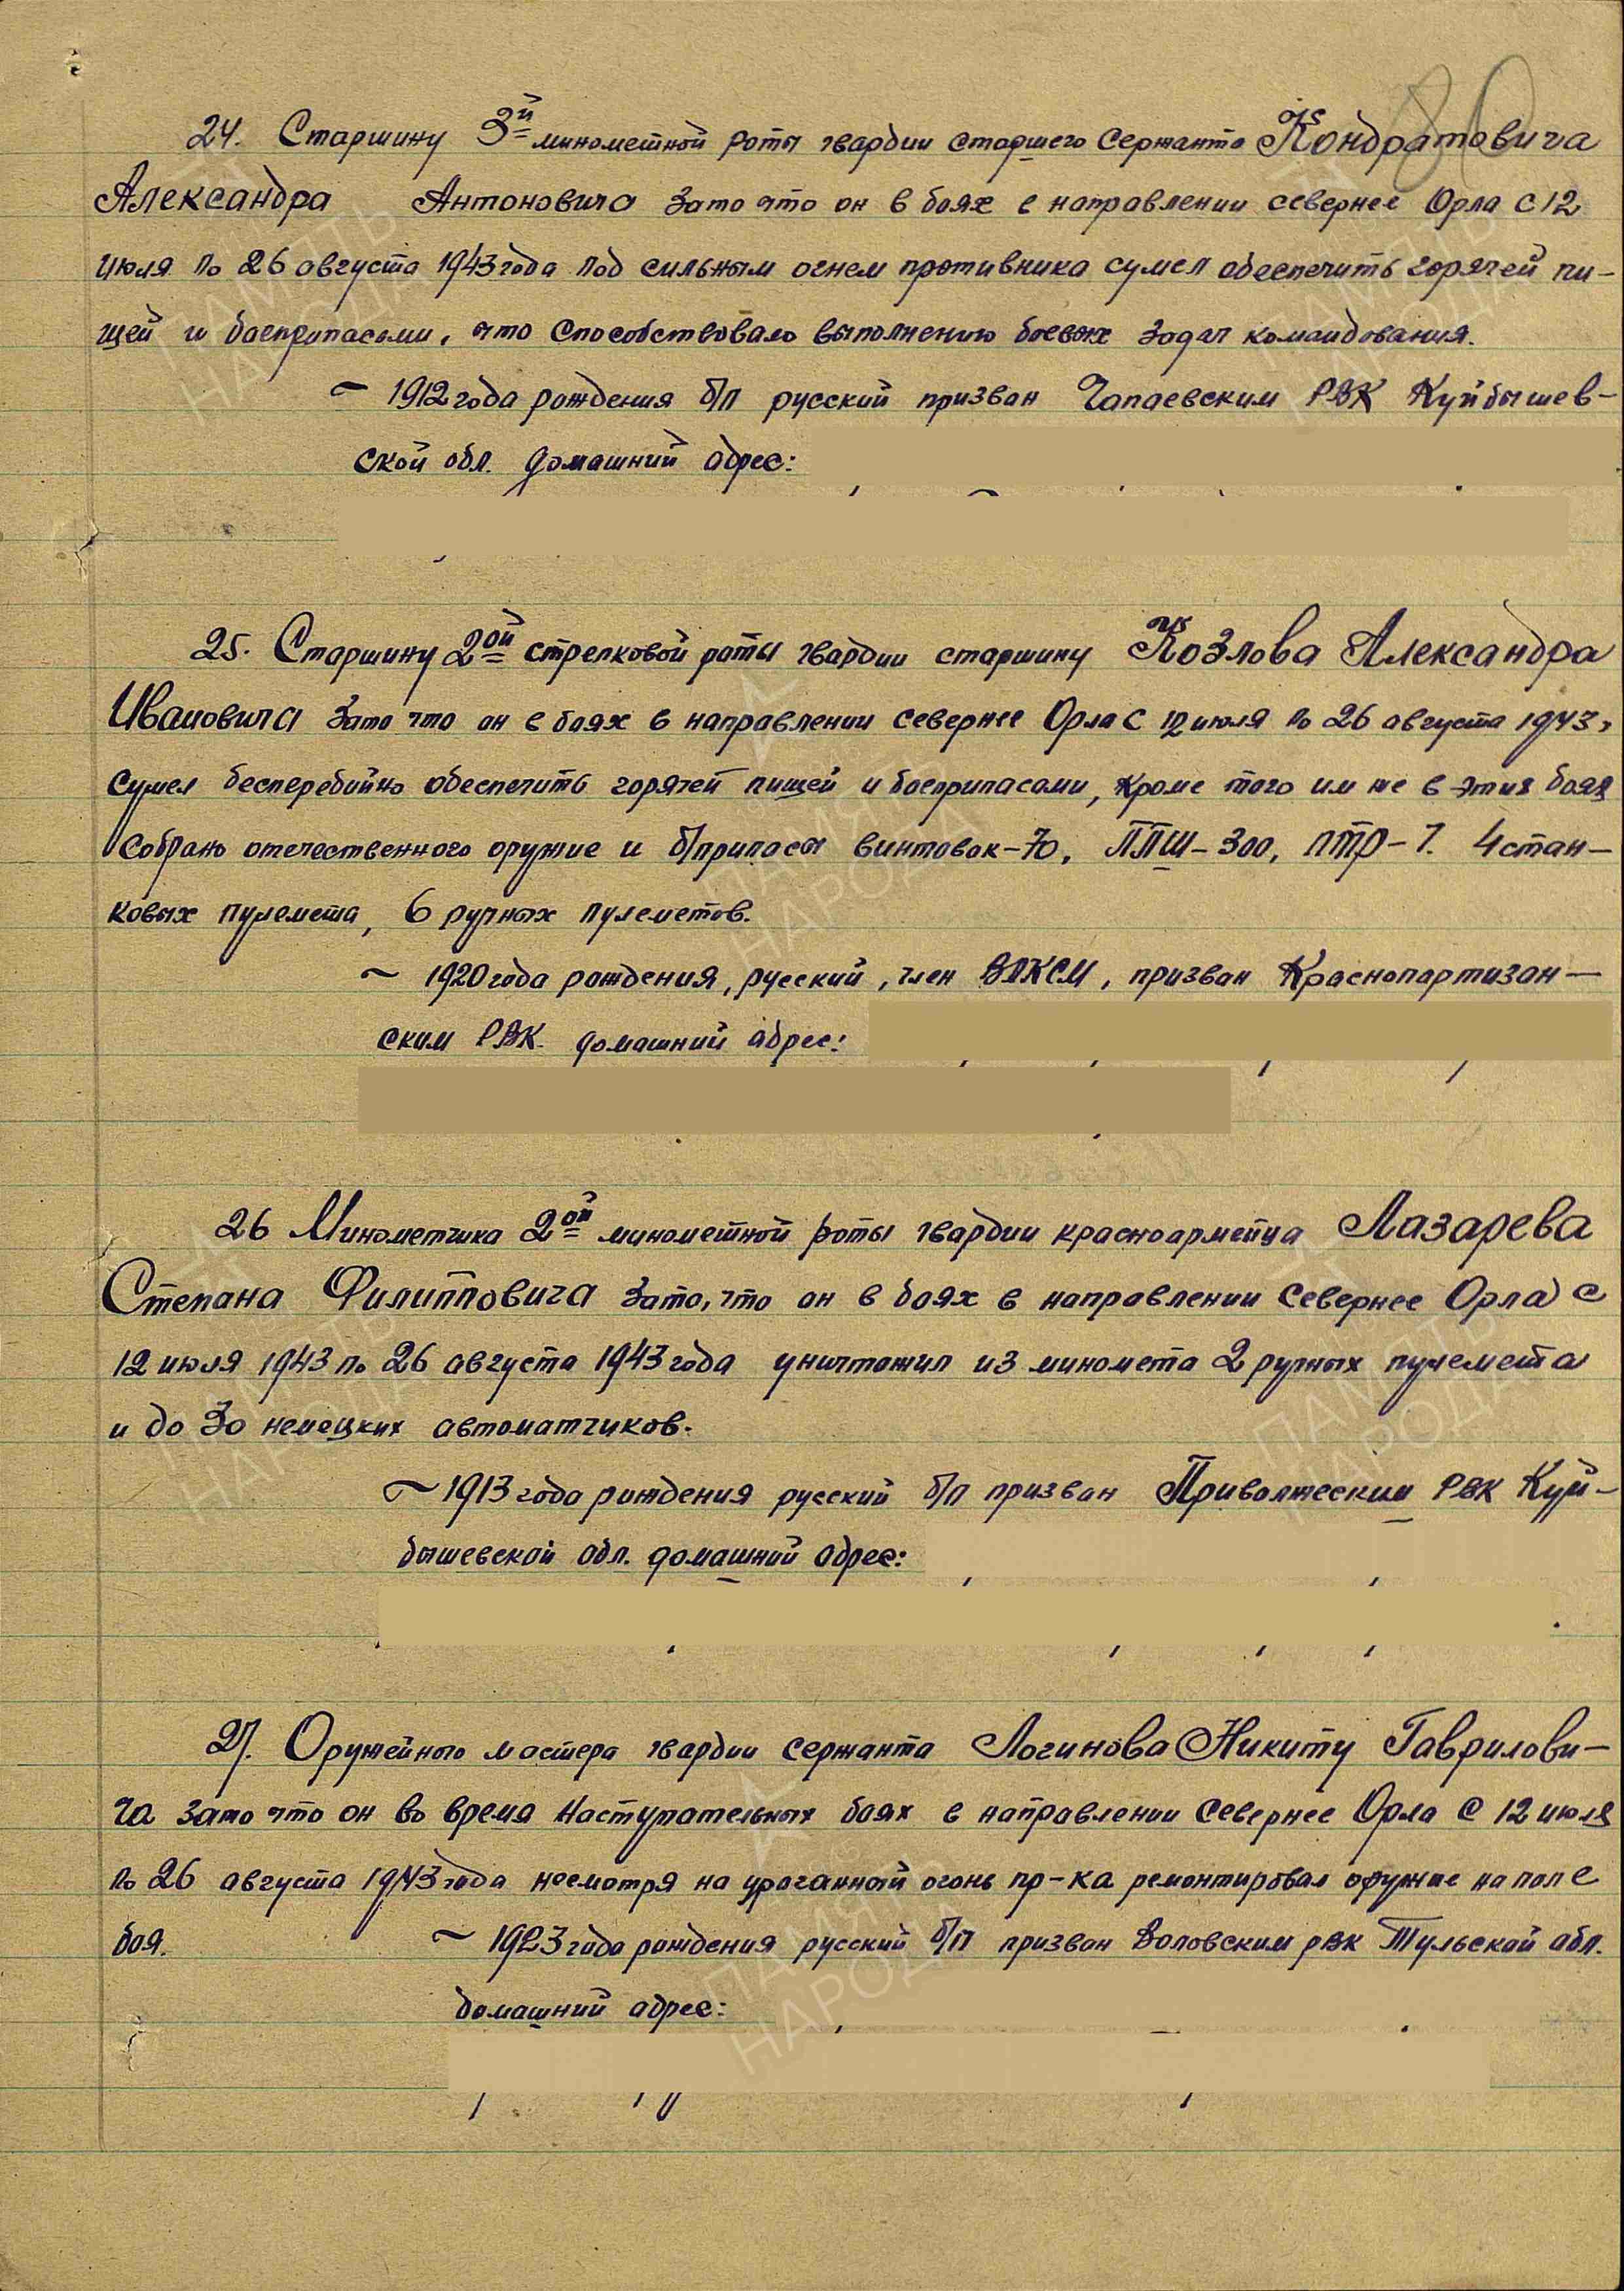 80
24. Старшину 3й минометной роты гвардии старшего сержанта Кондратовича
Александра Антоновича зато что он в боях в направлении севернее Орла с 12
июля по 26 августа 1943 года под сильным огнем противника сумел обеспечить горячей пи-
щей и боеприпасами, что способствовало выполнению боевых задач командования.
~ 1912 года рождения б/п русский призван Чапаевским РВК Куйбышев-
ской обл. домашний адрес:
25. Старшину 2ой стрелковой роты гвардии старшину Козлова Александра
Ивановича зато что он в боях в направлении севернее Орла с 12 июля по 26 августа 1943г
сумел бесперебойно обеспечить горячей пищей и боеприпасами, кроме того им же в этих боях
собрано отечественного оружие и б/припасы винтовок-70, ППШ-300, ПТР-7. 4 стан-
ковых пулемета, 6 ручных пулеметов.
~ 1920 года рождения, русский, член ВЛКСМ, призван Краснопартизан-
ским РВК. домашний адрес:
26 Минометчика 2ой минометной роты гвардии красноармейца Лазарева
Степана Филипповича зато, что он в боях в направлении севернее Орла с
12 июля 1943 по 26 августа 1943 года уничтожил из миномета 2 ручных пулемета
и до 30 немецких автоматчиков.
~ 1913 года рождения русский б/п призван Приволжским РВК Куй-
бышевской обл. домашний адрес:
27. Оружейного мастера гвардии сержанта Логинова Никиту Гаврилови-
ча зато что он во время наступательных боях в направлении севернее Орла с 12 июля
по 26 августа 1943 года несмотря на ураганный огонь пр-ка ремонтировал оружие на поле
боя. ~ 1923 года рождения русский б/п призван Воловским РВК Тульской обл.
домашний адрес:
ПАМЯТЬ
НАРОДА